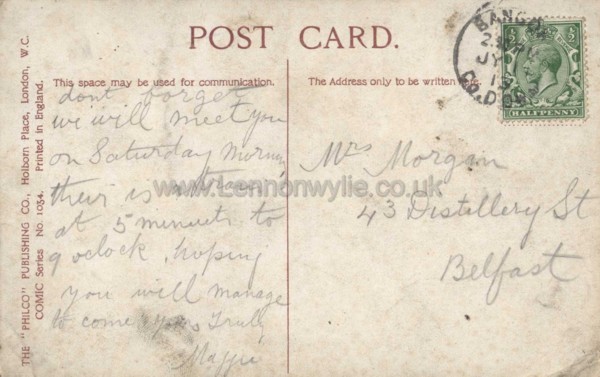 POST CARD.
This space may be used for communication.
The Address only to be written here.
THE "PHILCO" PUBLISHING CO., Holborn Place, London, W.C.
COMIC Series No. 1054. Printed in England.
dont forget
we will meet you
on Saturday morning
their is a train
at 5 minuets to
9 oclock, hoping
you will manage
to come yours Truly
Maggie
Mrs Morgan
43 Distillery St
Belfast
BANGOR
JY
CO. DOWN
HALFPENNY
www.Lennonwylie.co.uk